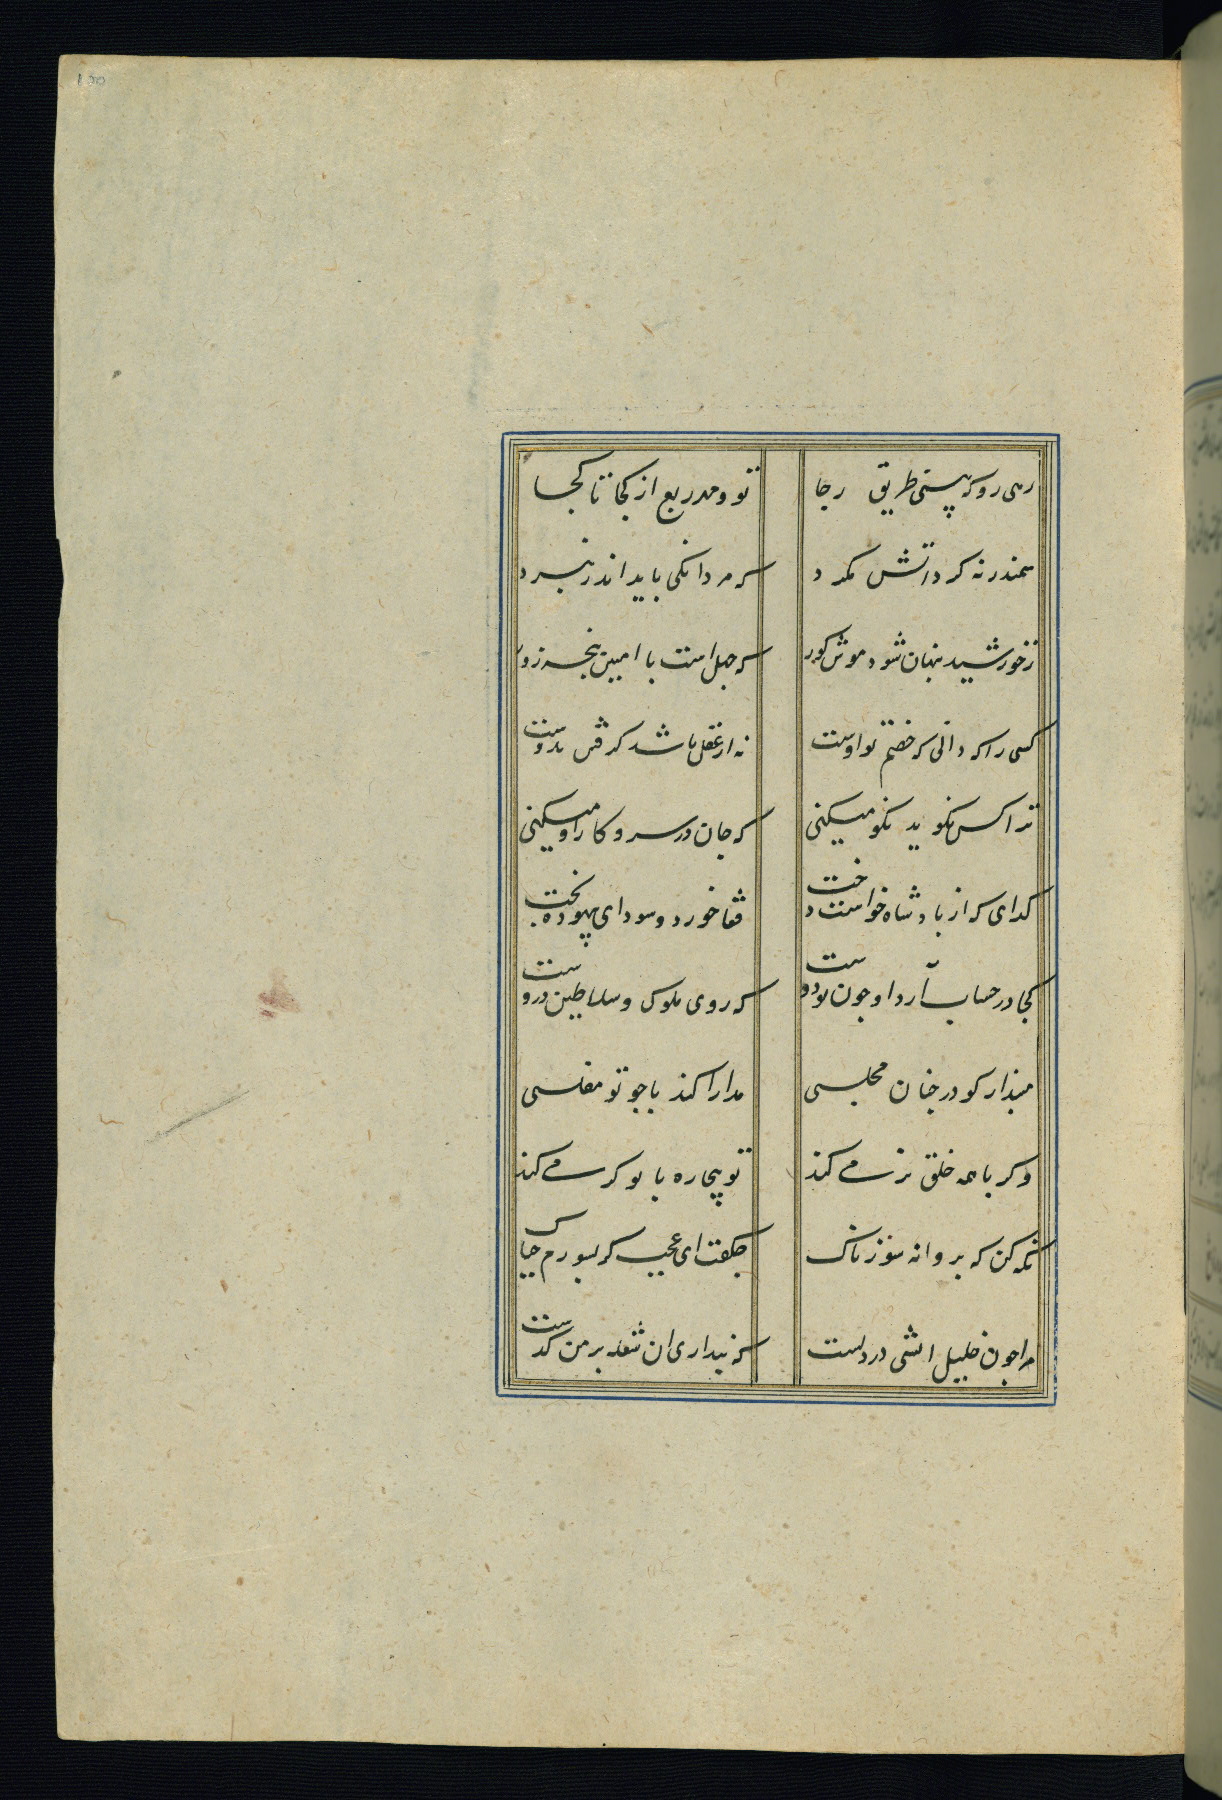 رهی رو که بینی طریق رجا تو و مهر ربع از کجا تا کجا
سمندر نه کرد اتش مکرد که مردانکی باید اندر نبرد
زخورشید پنهان شود موش کور که جهل است با اهنین پنجه زور
کسی را که دانی که خصم تو اوست نه از عقل باشد کرفتن بدوست
ترا کس نکوید نکو میکنی که جان در سر و کار او میکنی
کدای که از پادشاه خواست دخت قفا خورد و سودای بیهوده پخت
کجا در حساب آرد او چون تو دوست که روی ملوک و سلاطین دروست
مپندار کو در چنان مجلسی مدارا کند با چو تو مفلسی
وکر با همه خلق نرمی کند تو بیچاره با تو کرمی کند
نکه کن که پروانه سوزناک چکفت ای عجب کر بسوزم چه باک
مرا چون خلیل اتشی در دلست که پنداری ان شعله بر من کلست